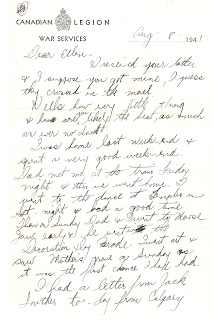 CANADIAN LEGION
WAR SERVICES
Aug 8 1941
Dear Ellen -
I received your letter
& I suppose you got mine, I guess
they crossed in the mail
Well how very little thing
&
as ever no doubt.
I was home last week end &
spent a very good week end.
Dad met me at the train Friday
night & then we went home. I
went to the dance at
Sat. night & had a good time
Then on Sunday Dad & I went to
early & he went
Decoration Day Parade. I went at &
saw Mother's grave on Sunday as
it was the first chance I had had.
I had a letter from Jack
to-day from Calgary